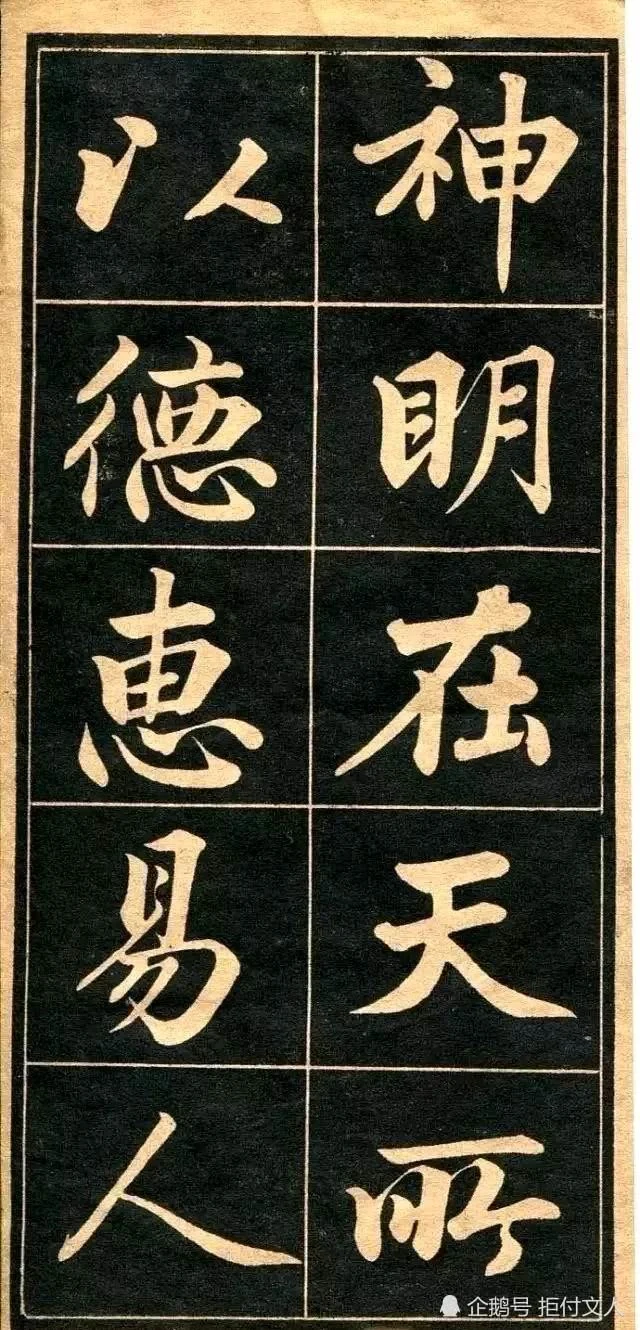 神明在天所
以德惠易人
企鹅号 拒付文人